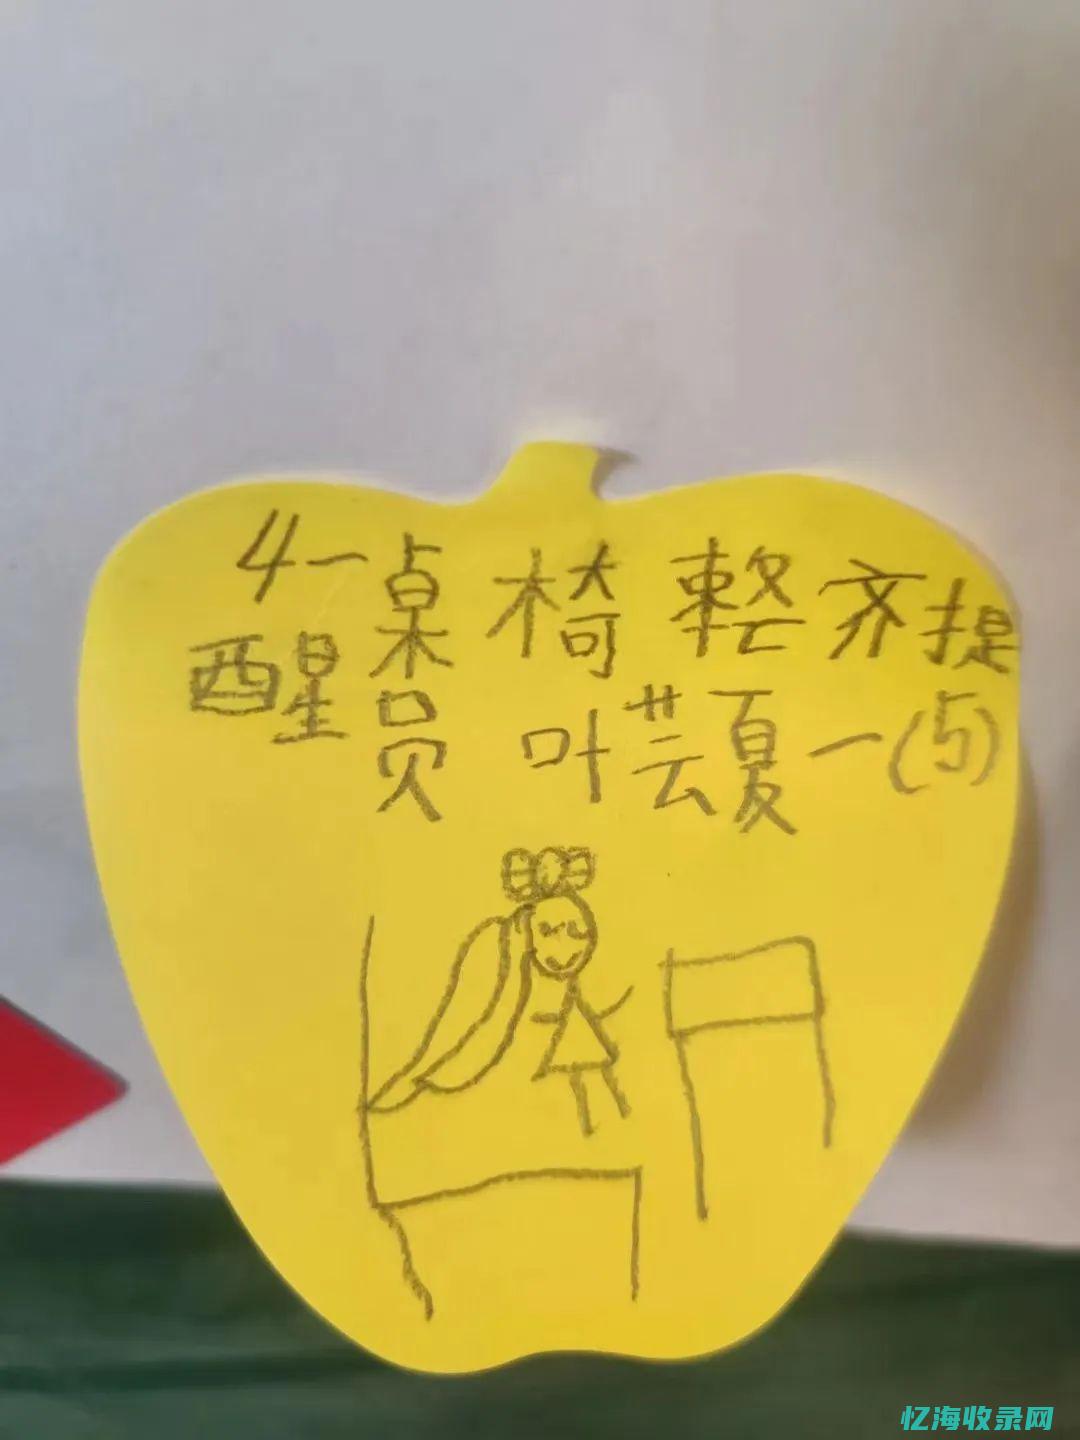 4一桌椅整齐提
醒员 叶芸夏一(5)
忆海收录网